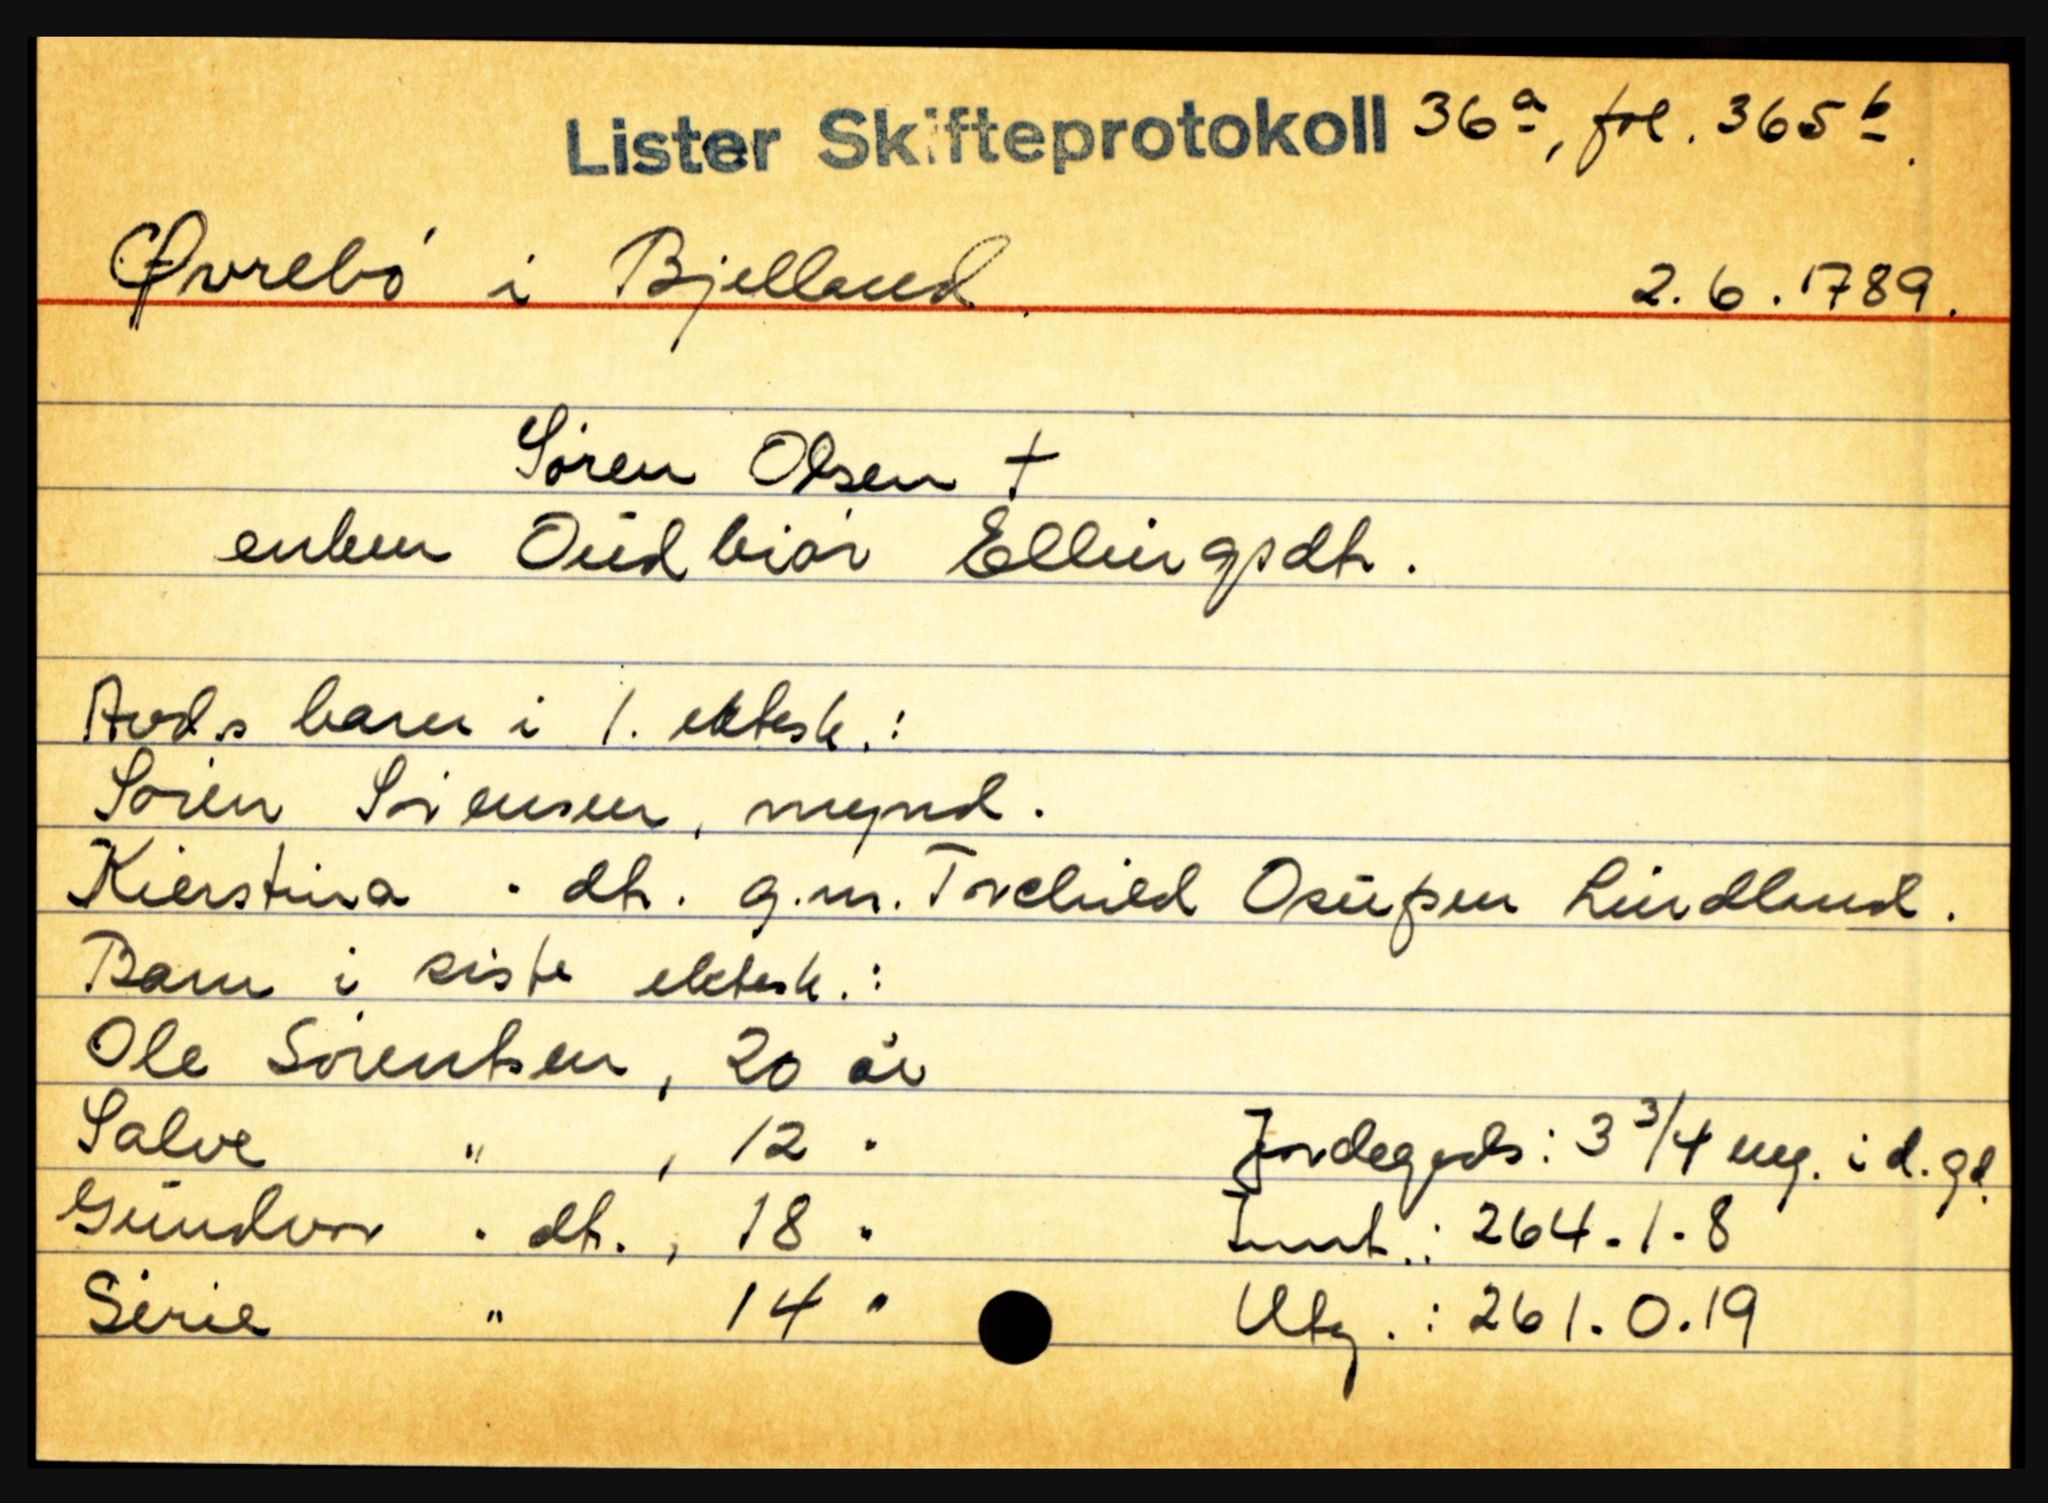 Lister Skifteprotokoll 36a, fol. 365b.
Øvrebö i Bjelland. 2.6.1789.
Sören Olsen †
enken Oüdbiör Ellingsdtr.
Avd.s barn i 1. ektesk.:
Sören Sörensen, mynd.
Kierstina " dtr. g.m. Torchild Osüfsen Lindland.
Barn i siste ektesk.:
Ole Sörentsen, 20 år
Salve " , 12 "
Gündvor " dtr., 18 "
Sirie " 14 "
Jordegods: 3 3/4 eng. i d. gd.
Innt.: 264-1-8
Utg.: 261-0-19